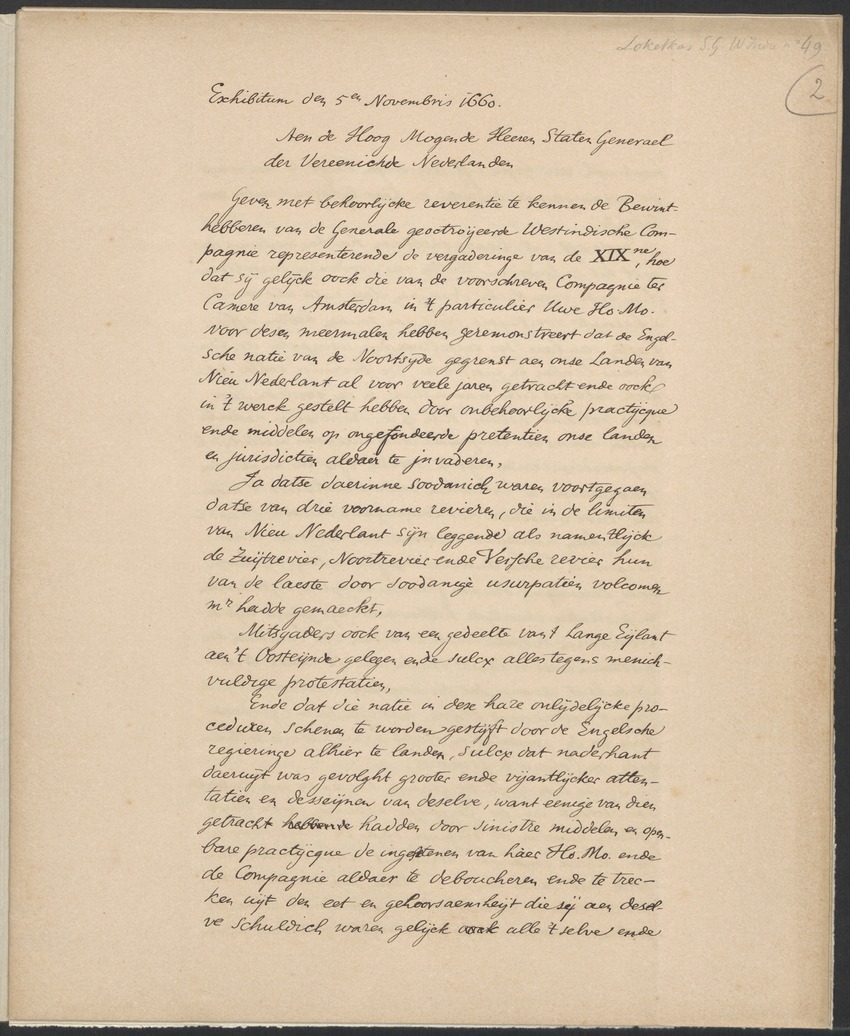 Loketkas S.G. No 49
2
Exhibitum den 5en Novembris 1660.
Aen de Hoog Mogende Heeren Staten Generael
der Vereenichde Nederlanden
Geven met behoorlijcke reverentie te kennen de Bewint-
hebberen van de Generale geoctroijeerde Westindische Com-
pagnie representerende de vergaderinge van de XIXne, hoe
dat sij gelijck oock die van de voorschreven Compagnie ter
Camere van Amsterdam in 't particulier Uwe Ho. Mo.
voor desen meermalen hebben geremonstreert dat de Engel-
sche natie van de Noortsijde gegrenst aen onse Landen van
Nieu Nederlant al voor veele jaren getracht ende oock
in 't werck gestelt hebben door onbehoorlijcke practijcque
ende middelen op ongefondeerde pretentien onse landen
en jurisdictien aldaer te jnvaderen,
Ja datse daerinne soodanich waren voortgegaen
datse van drie voorname revieren, die in de limiten
van Nieu Nederlant sijn leggende als namentlijck
de Zuijtrevier, Noortrevier ende Versche revier hun
van de laeste door soodanige usurpatien volcomen
mr hadde gemaeckt,
Mitsgaders oock van een gedeelte van 't Lange Eijlant
aen 't Oosteijnde gelegen ende sulcx alles tegens menich-
vuldige protestatien,
Ende dat die natie in dese hare onlijdelijcke pro-
ceduren schenen te worden gestijft door de Engelsche
regieringe alhier te landen, sulcx dat naderhant
daeruijt was gevolght grooter ende vijantlijcker atten-
tatien en desseijnen van deselve, want eenige van dien
getracht hebbende hadden door sinistre middelen en open-
bare practijcque de ingesetenen van haer Ho. Mo. ende
de Compagnie aldaer te deboucheren ende te trec-
ken uijt den eet en gehoorsaemheijt die sij aen desel-
ve schuldich waren gelijck oock alle 't selve ende